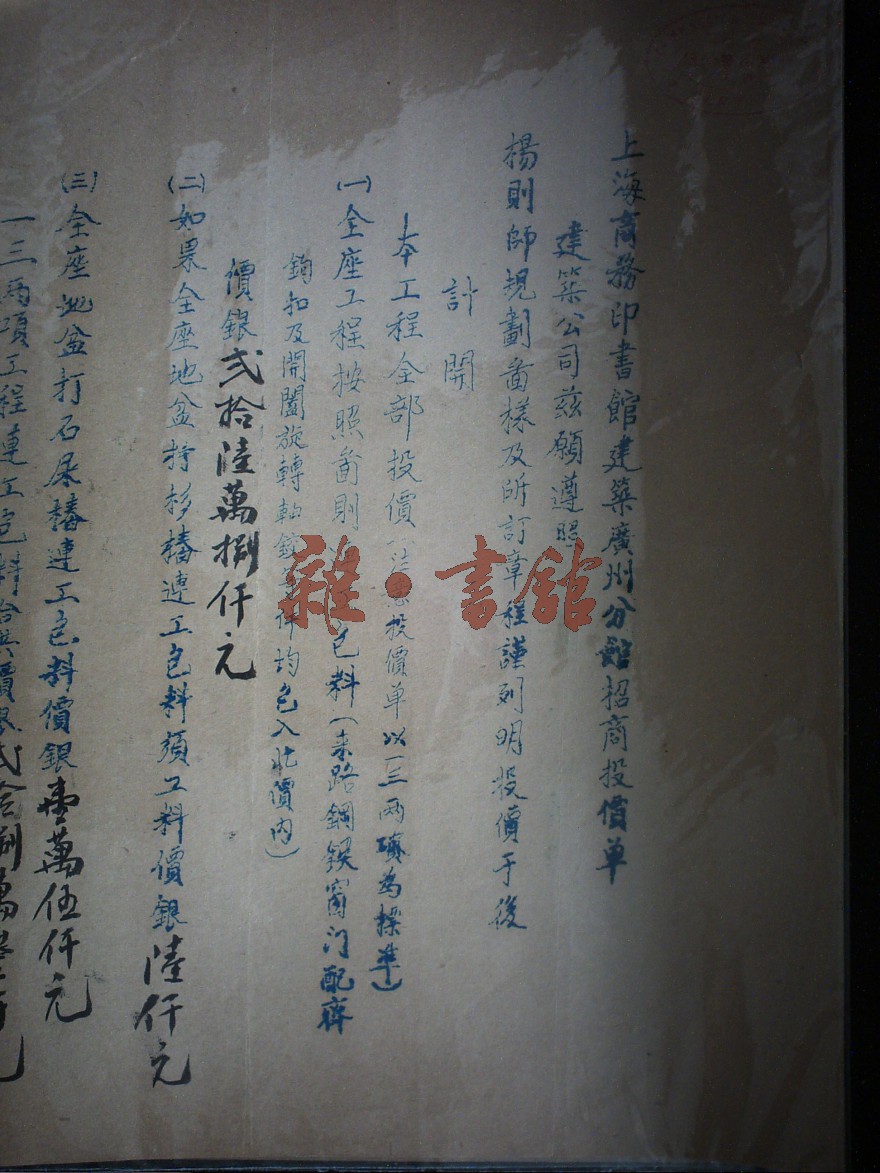 上海商務印書館建築廣州分館招商投價单
建築公司茲願遵照
楊則師規劃啚樣及所訂章程謹列明投價于後
計開
本工程全部投價(注意投價单以一三两項為標準)
㈠全座工程按照啚則 包料(来路鋼鐵窗门配齊
鉤扣及開闔旋轉軸鉸 件均包入此價内)
價銀弍拾陸萬捌仟元
㈡如果全座地盆打杉樁連工包料須工料價銀陸仟元
㈢全座地盆打石屎樁連工包料價銀壹萬伍仟元
一三两項工程連工包料合共價銀弍拾捌萬 元
雜·書館